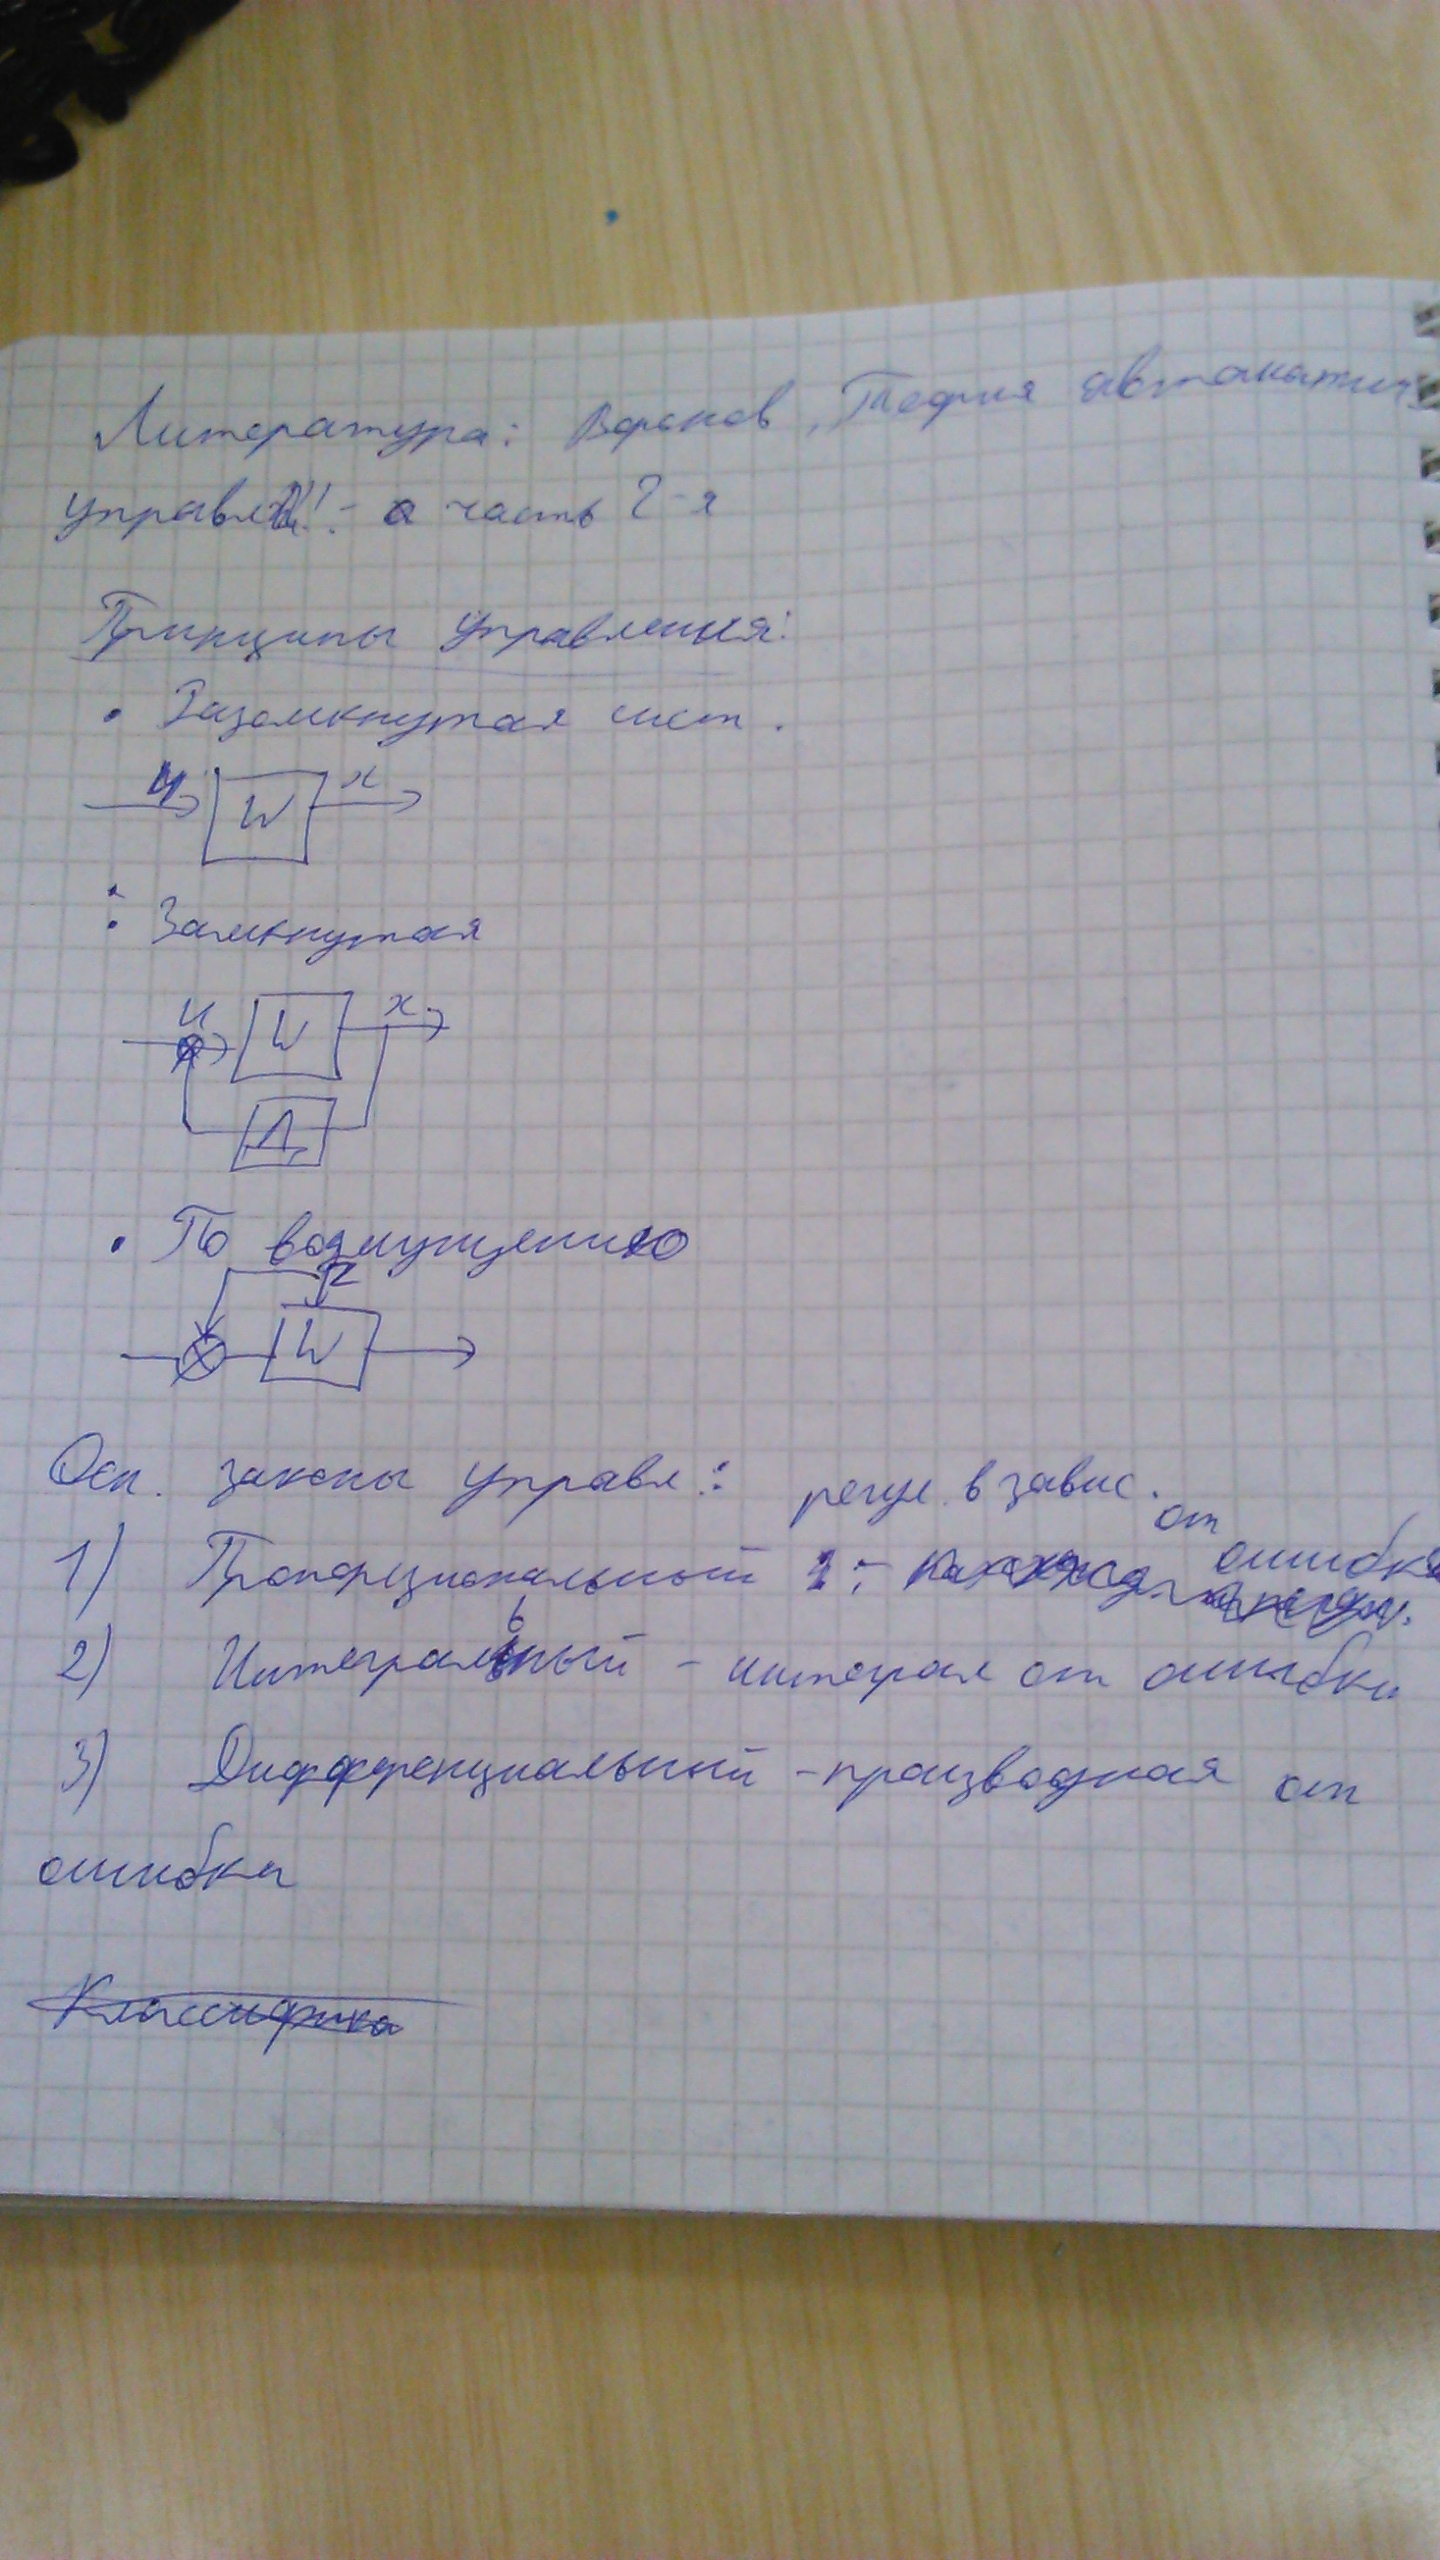 Литература: Воронов „Теория автоматич.
управл." - а часть 2-я
Принципы управления:
• Разомкнутая сист.
u W x
: Замкнутая
u W x
Д
• По возмущению
W
Осн. законы управл.: регул. в завис. от ошибки
1) Пропорциональный -
2) Интегральный - интеграл от ошибки
3) Дифференциальный - производная от
ошибки
Классифика